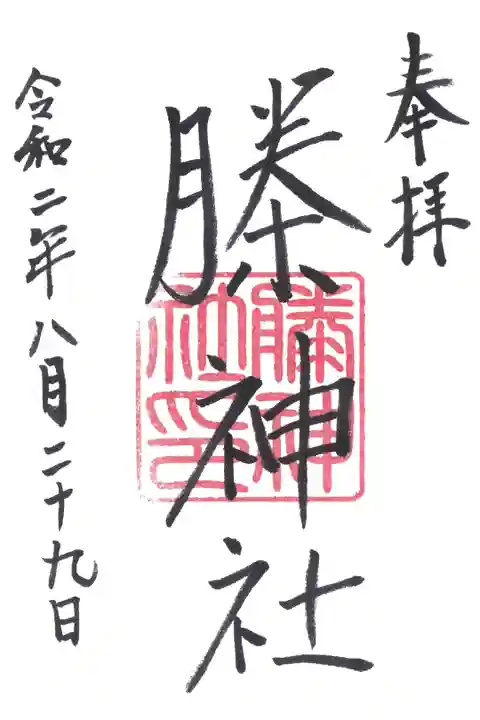 奉拝
榺神社
榺神
社印
令和二年八月二十九日